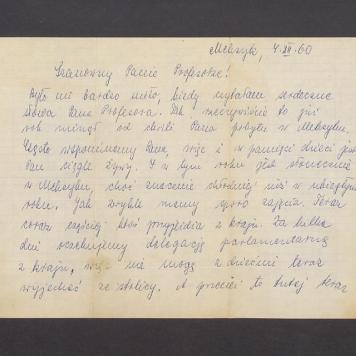 Meksyk, 4.XII.60
Szanowny Panie Profesorze!
Było mi bardzo miło, kiedy czytałam serdeczne
słowa Pana Profesora. Tak rzeczywiście to już
rok minął od chwili Pana pobytu w Meksyku.
Często wspominamy Pana wizytę i w pamięci dzieci jest
Pan ciągle żywy. I w tym roku jest słonecznie
w Meksyku, choć znacznie chłodniej niż w ubiegłym
roku. Jak zwykle mamy sporo zajęcia. Teraz
coraz częściej ktoś przyjeżdża z kraju. Za kilka
dni oczekujemy delegację parlamentarną
z kraju, więc nie mogę z dziećmi teraz
wyjechać ze stolicy. A przecież to tutaj teraz